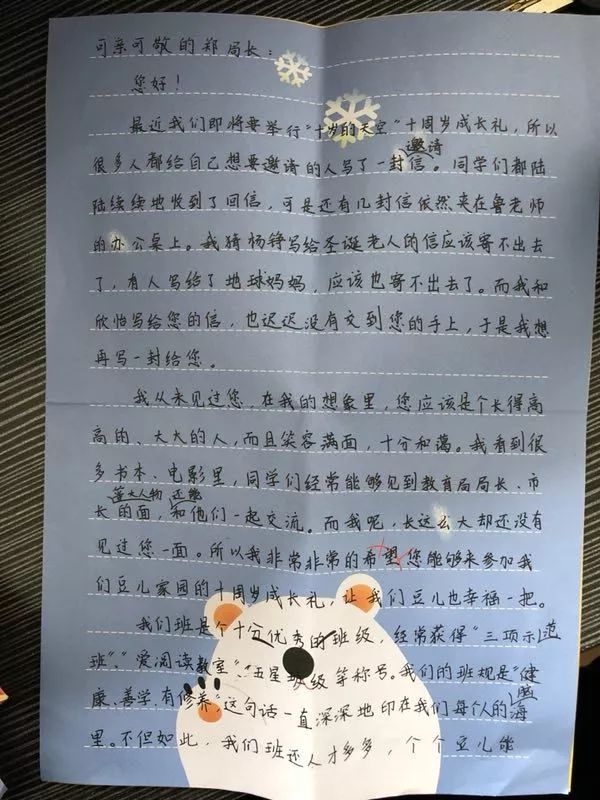 可亲可敬的郑局长：
您好！
最近我们即将要举行“十岁的天空”十周岁成长礼，所以
很多人都给自己想要邀请的人写了一封邀请信。同学们都陆
陆续续地收到了回信，可是还有几封信依然夹在鲁老师
的办公桌上。我猜杨铮写给圣诞老人的信应该寄不出去
了，有人写给了地球妈妈，应该也寄不出去了。而我和
欣怡写给您的信，也迟迟没有交到您的手上，于是我想
再写一封给您。
我从未见过您，在我的想象里，您应该是个长得高
高的、大大的人，而且笑容满面，十分和蔼。我看到很
多书本、电影里，同学们经常能够见到教育局局长、市
长等大人物的面，还能和他们一起交流。而我呢，长这么大却还没有
见过您一面。所以我非常非常的希望您能够来参加我
们豆儿家园的十周岁成长礼，让我们豆儿也幸福一把。
我们班是个十分优秀的班级，经常获得“三项示范
班”、“爱阅读教室”、“五星班级等称号。我们的班规是“健
康、善学、有修养”，这句话一直深深地印在我们每个人的脑海
里。不但如此，我们班还人才多多，个个豆儿能